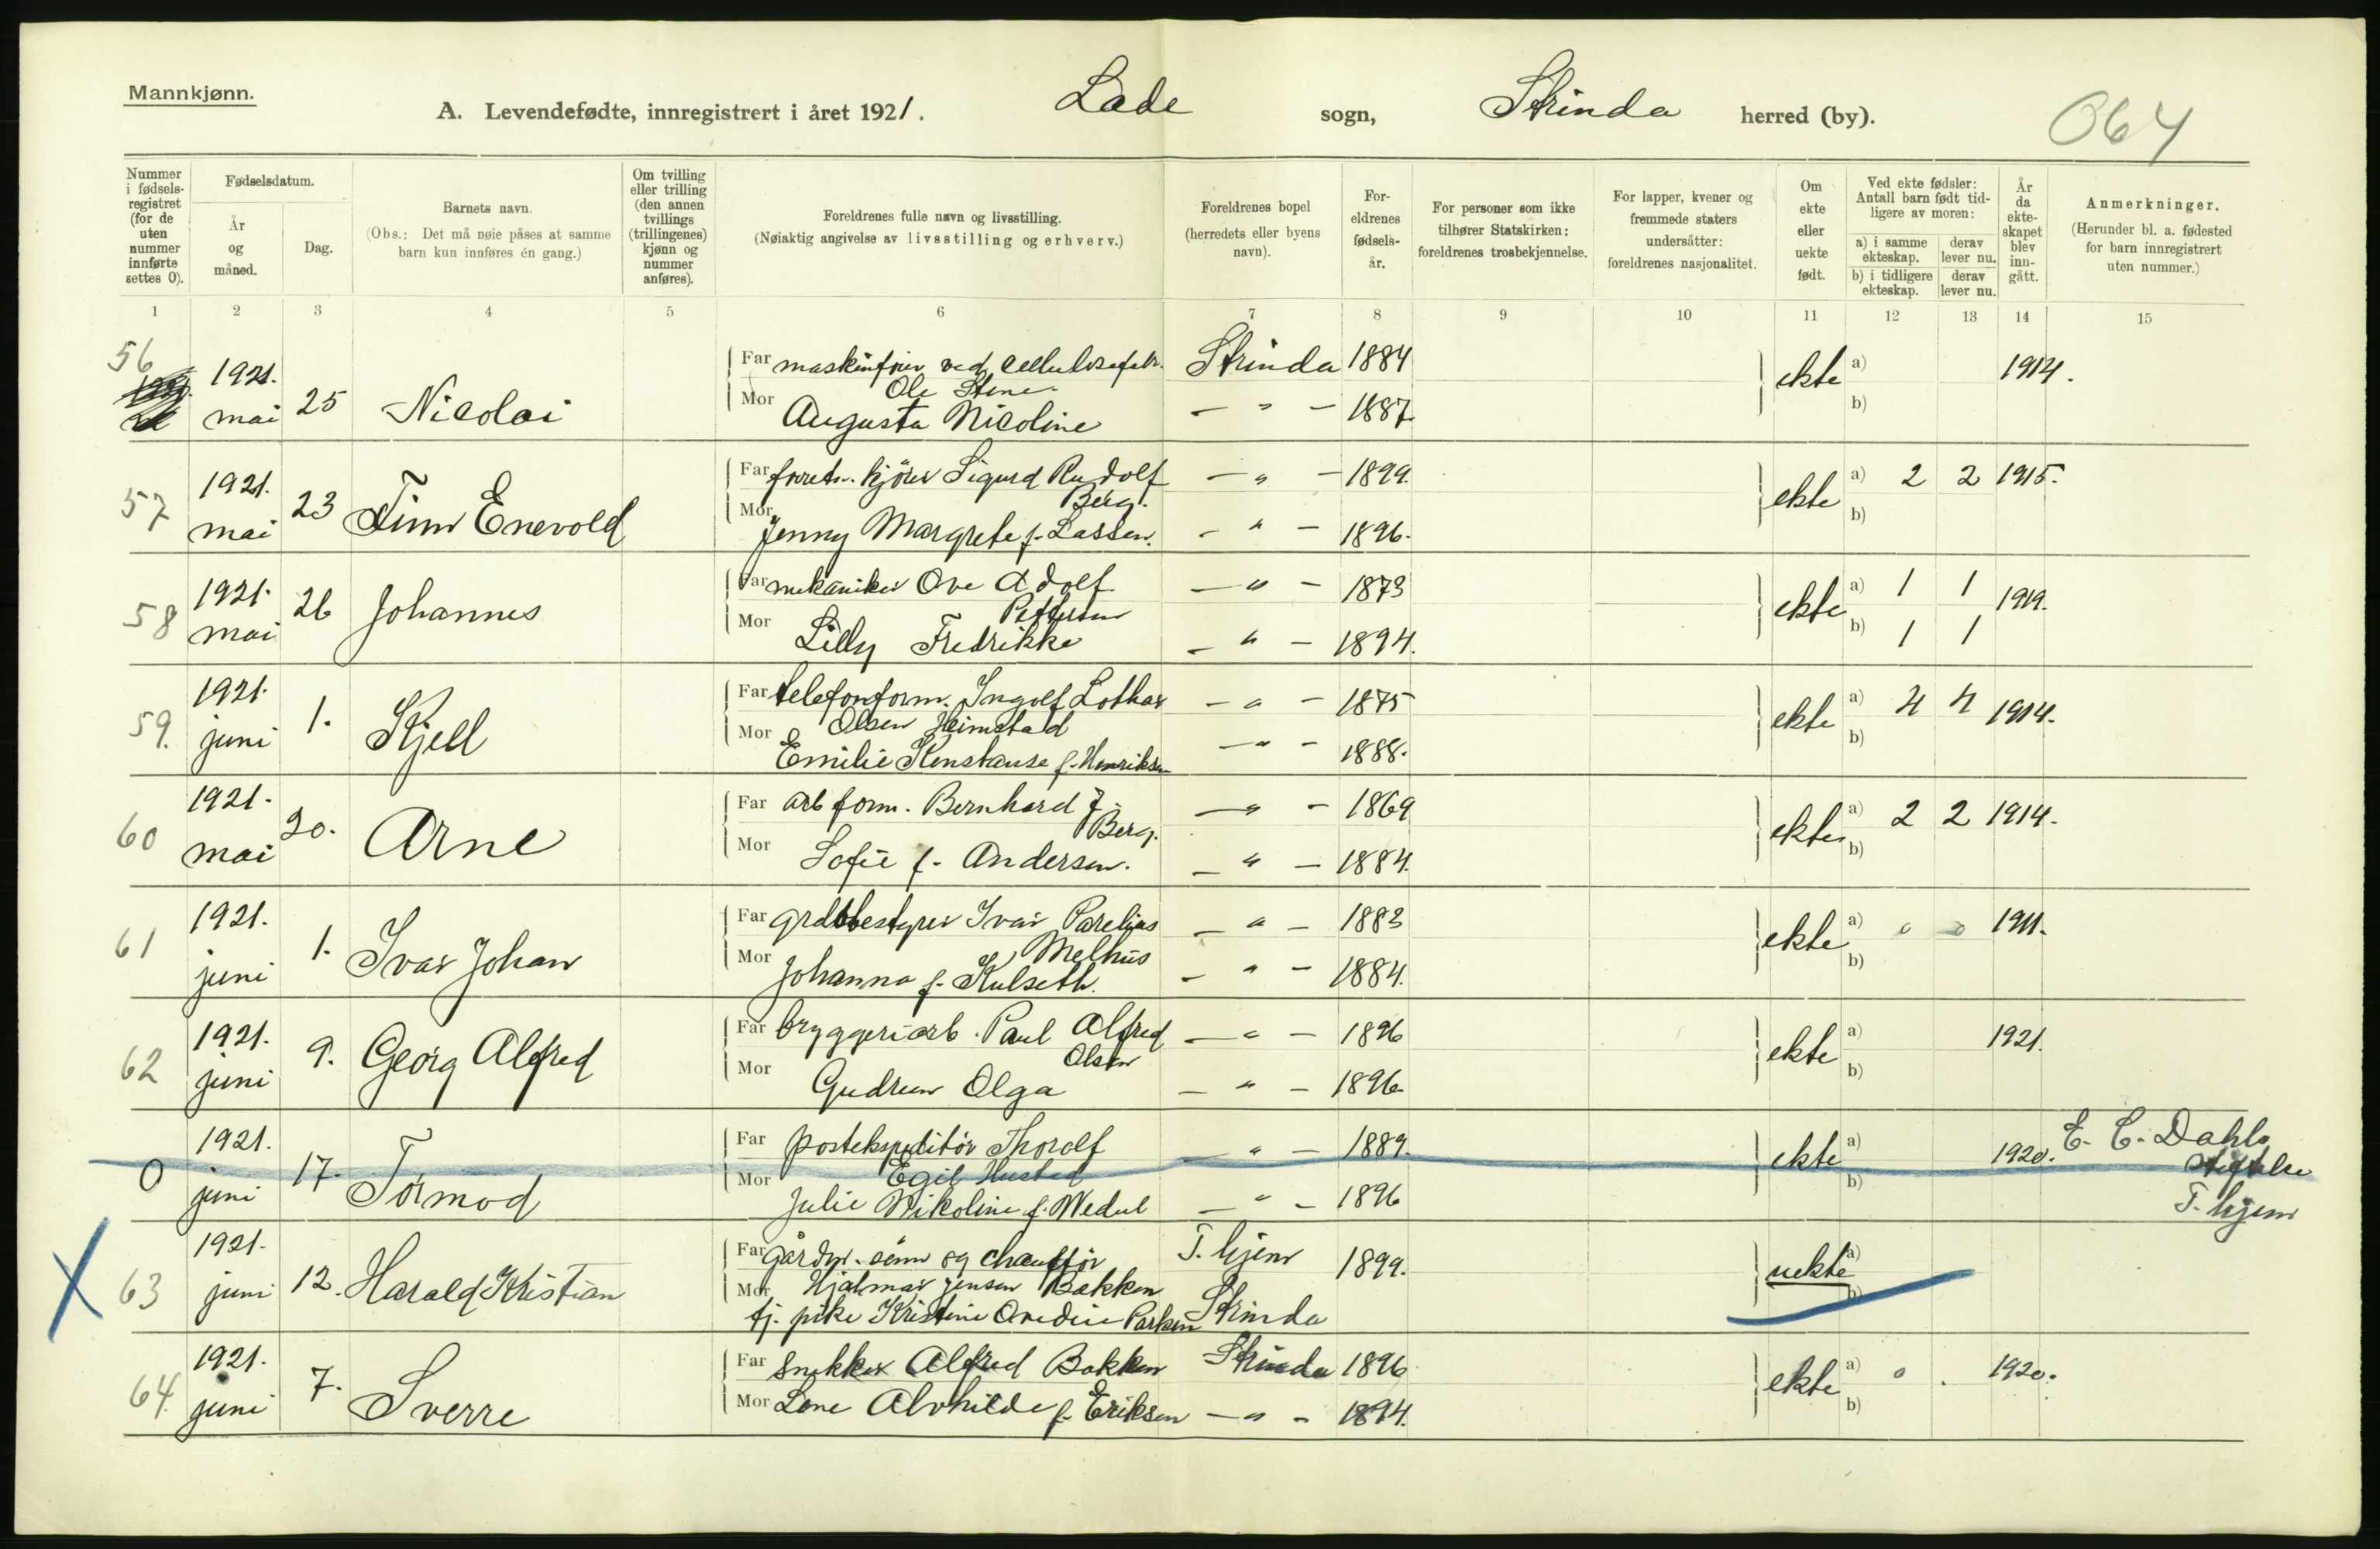 Mannkjønn.
A. Levendefødte, innregistrert i året 1921. Lade sogn, Strinda herred (by). 064
Nummer i fødsels-registret (for de uten nummer innførte settes 0).
Fødselsdatum.
År og måned.
Dag.
Barnets navn.
(Obs.: Det må nøie påses at samme barn kun innføres én gang.)
Om tvilling eller trilling (den annen tvillings (trillingenes) kjønn og nummer anføres).
Foreldrenes fulle navn og livsstilling.
(Nøiaktig angivelse av livsstilling og erhverv.)
Foreldrenes bopel (herredets eller byens navn).
For-eldrenes fødsels-år.
For personer som ikke tilhører Statskirken: foreldrenes trosbekjennelse.
For lapper, kvener og fremmede staters undersåtter: foreldrenes nasjonalitet.
Om ekte eller uekte født.
Ved ekte fødsler: Antall barn født tid-ligere av moren:
a) i samme ekteskap. derav lever nu.
b) i tidligere ekteskap. derav lever nu.
År da ekte-skapet blev inn-gått.
Anmerkninger.
(Herunder bl. a. fødested for barn innregistrert uten nummer.)
1 2 3 4 5 6 7 8 9 10 11 12 13 14 15
56 1921. mai 25 Nicolai
Far ved Ole Stene Strinda 1884
Mor Augusta Nicoline — " — 1887
ekte a) b) 1914.
57 1921. mai 23 Finn Enevold
Far Sigurd Rudolf Berg. — " — 1899.
Mor Jenny Margrete f. Lassen. — " — 1896.
ekte a) 2 2 b) 1915.
58 1921. mai 26 Johannes
Far mekaniker Ove Adolf Pettersen — " — 1873
Mor Lilly Fredrikke — " — 1894.
ekte a) 1 1 b) 1 1 1919.
59. 1921. juni 1. Kjell
Far telefonform. Ingolf Lothar Olsen Heimstad — " — 1875
Mor Emilie Konstanse f. Henriksen — " — 1888.
ekte a) 4 4 b) 1914.
60 1921. mai 20. Arne
Far arb form. Bernhard J. Berg. — " — 1869
Mor Sofie f. Andersen. — " — 1884.
ekte a) 2 2 b) 1914.
61 1921. juni 1. Ivar Johan
Far Ivar Parelius Melhus — " — 1883
Mor Johanna f. Kulseth. — " — 1884.
ekte a) 0 0 b) 1911.
62 1921. juni 9. Georg Alfred
Far bryggeriarb. Paul Alfred Olsen — " — 1896
Mor Gudrun Olga — " — 1896
ekte a) b) 1921.
0 1921. juni 17. Tormod
Far postekspeditör Thorolf Egil Husted — " — 1889.
Mor Julie Nikoline f. Wedul — " — 1896
ekte a) b) 1920. E. C. Dahls stiftelse T. hjem
63 1921. juni 12. Harald Kristian
Far sønn og chaufför Hjalmar Jensen Bakken T. hjem 1899.
Mor tj. pike Kristine Ovedie Parken Strinda
uekte a) b)
64. 1921. juni 7. Sverre
Far snekker Alfred Bakken Strinda 1896
Mor Lene Alvhilde f. Eriksen — " — 1894.
ekte a) 0 . b) 1920.